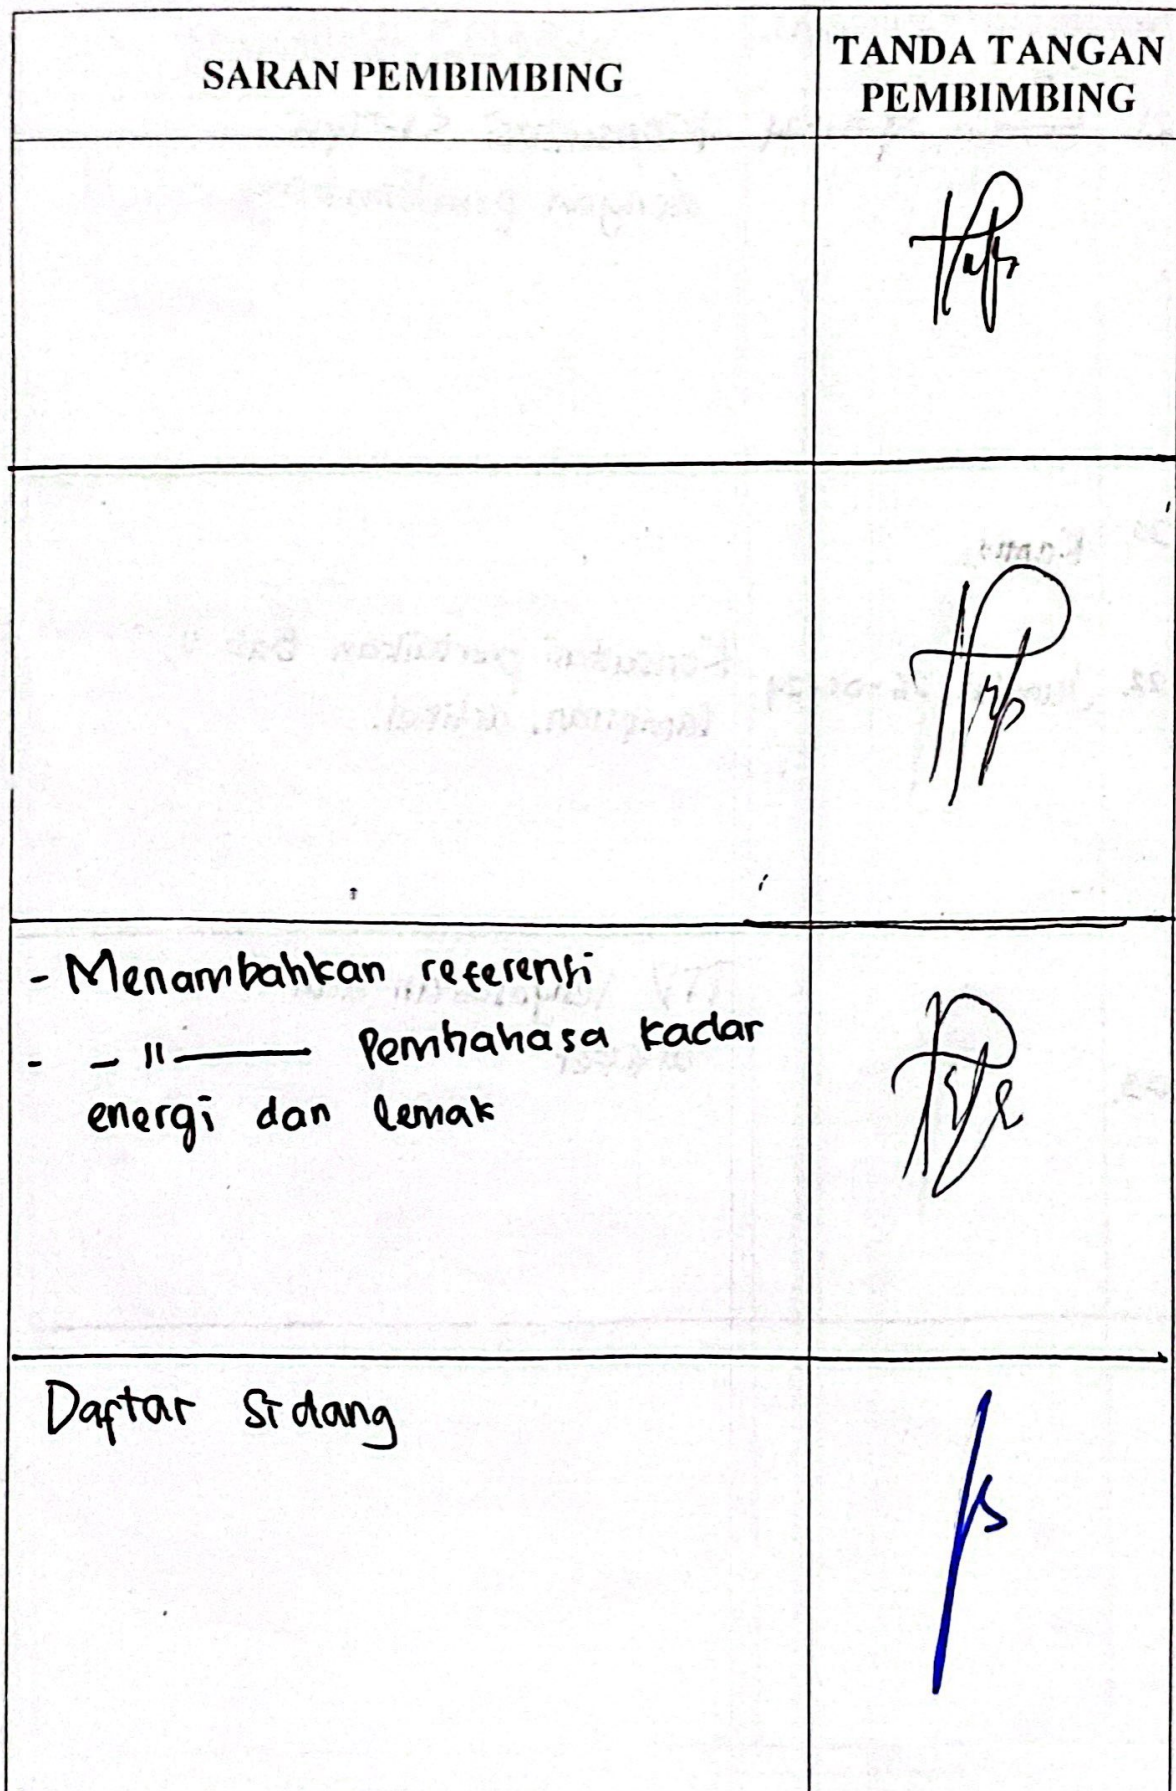 SARAN PEMBIMBING
TANDA TANGAN
PEMBIMBING
- Menambahkan referensi
- - 〃 —— Pembahasa kadar
energi dan lemak
Daftar Sidang